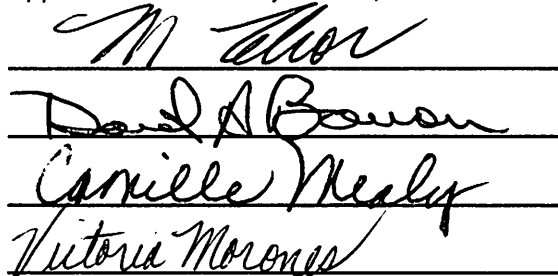 M
David A Bowron
Camille Mealy
Victoria Morones